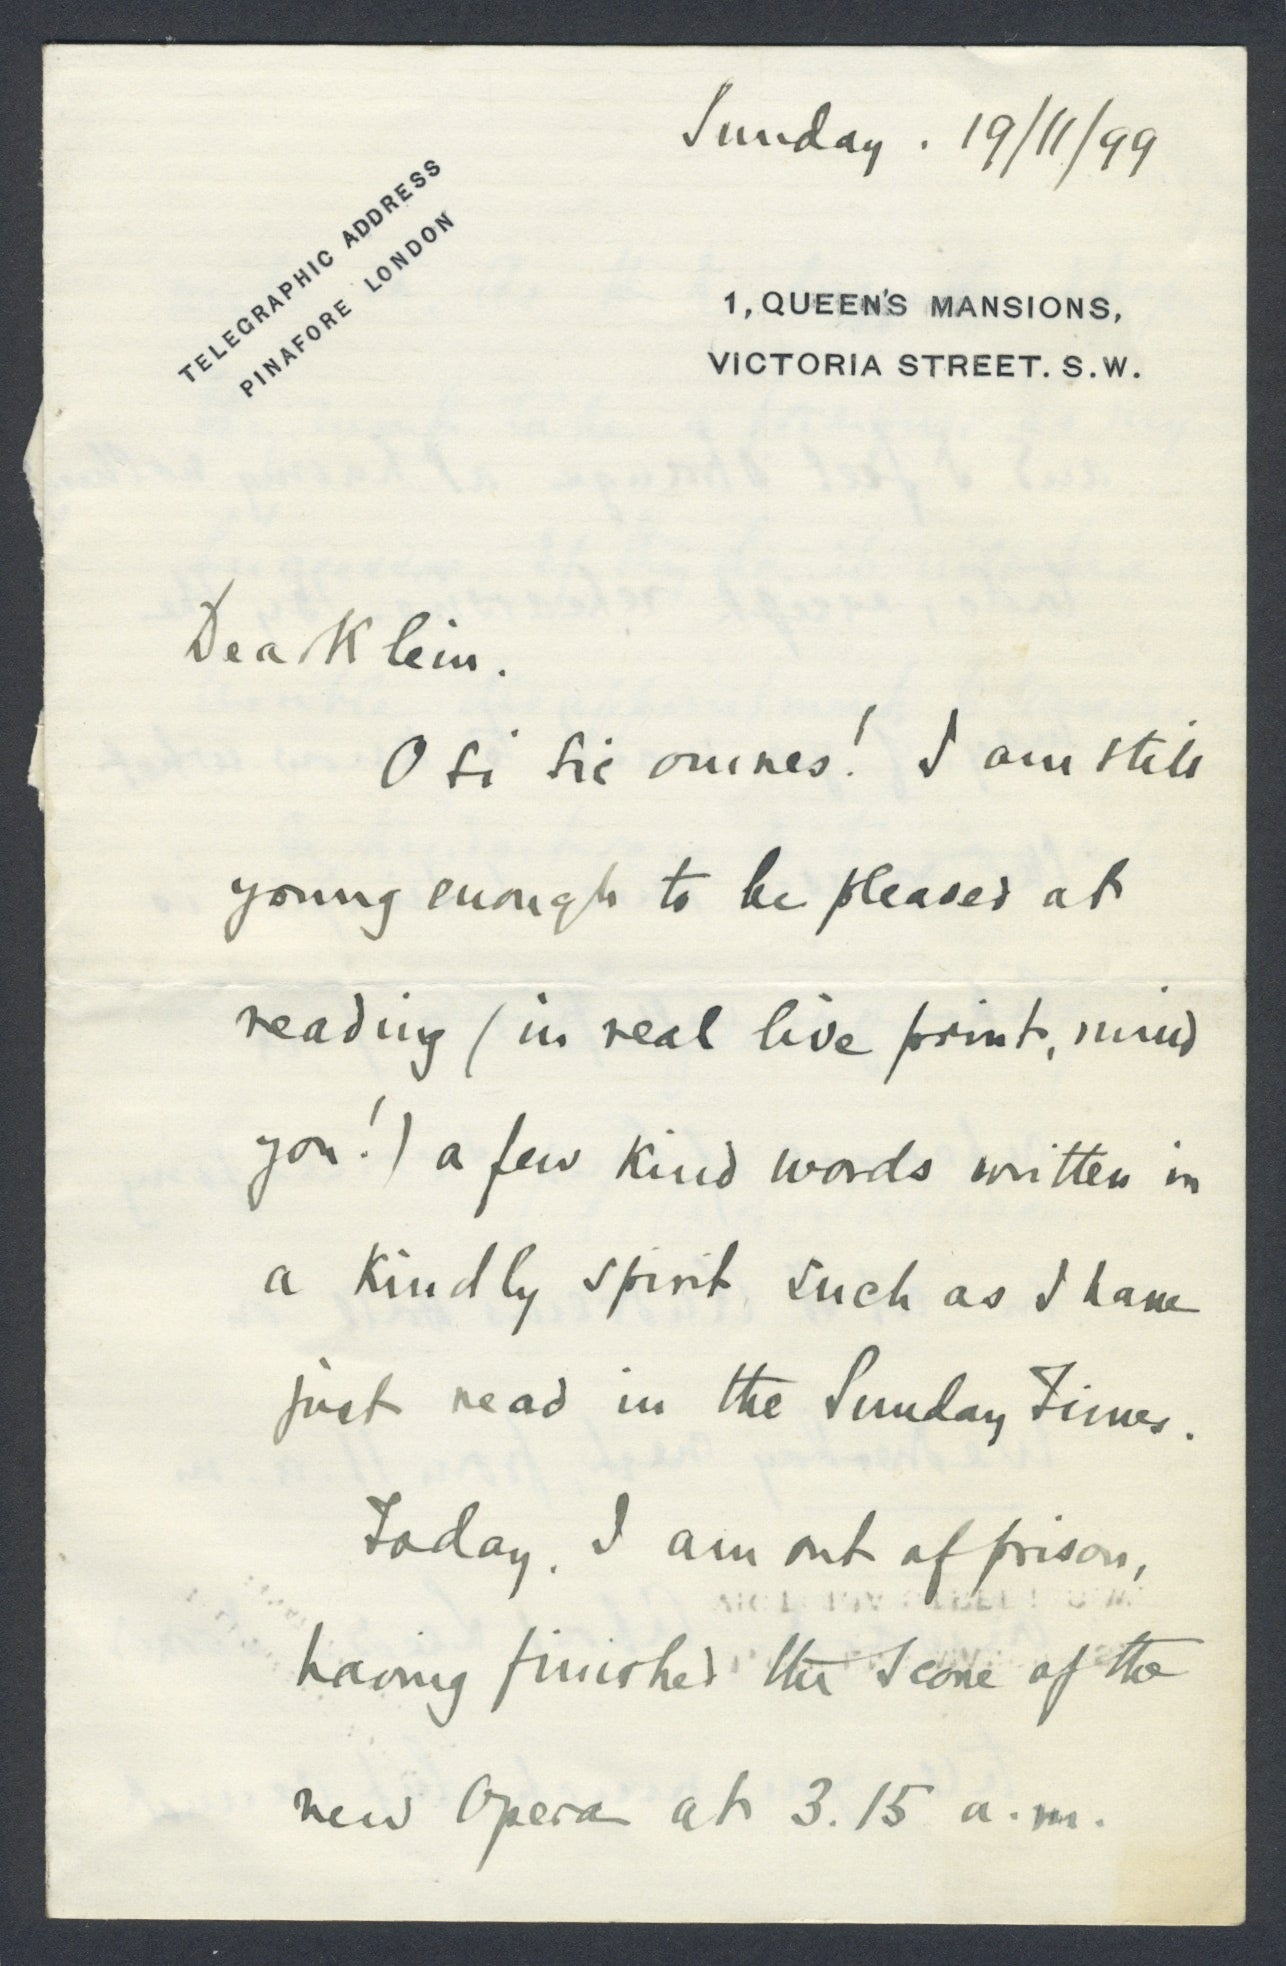 Sunday. 19/11/99
TELEGRAPHIC ADDRESS
PINAFORE LONDON
1, QUEEN'S MANSIONS,
VICTORIA STREET. S.W.
Dear Klein.
O si sic omnes! I am still
young enough to be pleased at
reading (in real live print, mind
you!) a few kind words written in
a kindly spirit such as I have
just read in the Sunday Times.
Today, I am out of prison,
having finished the Score of the
new Opera at 3.15 a.m.